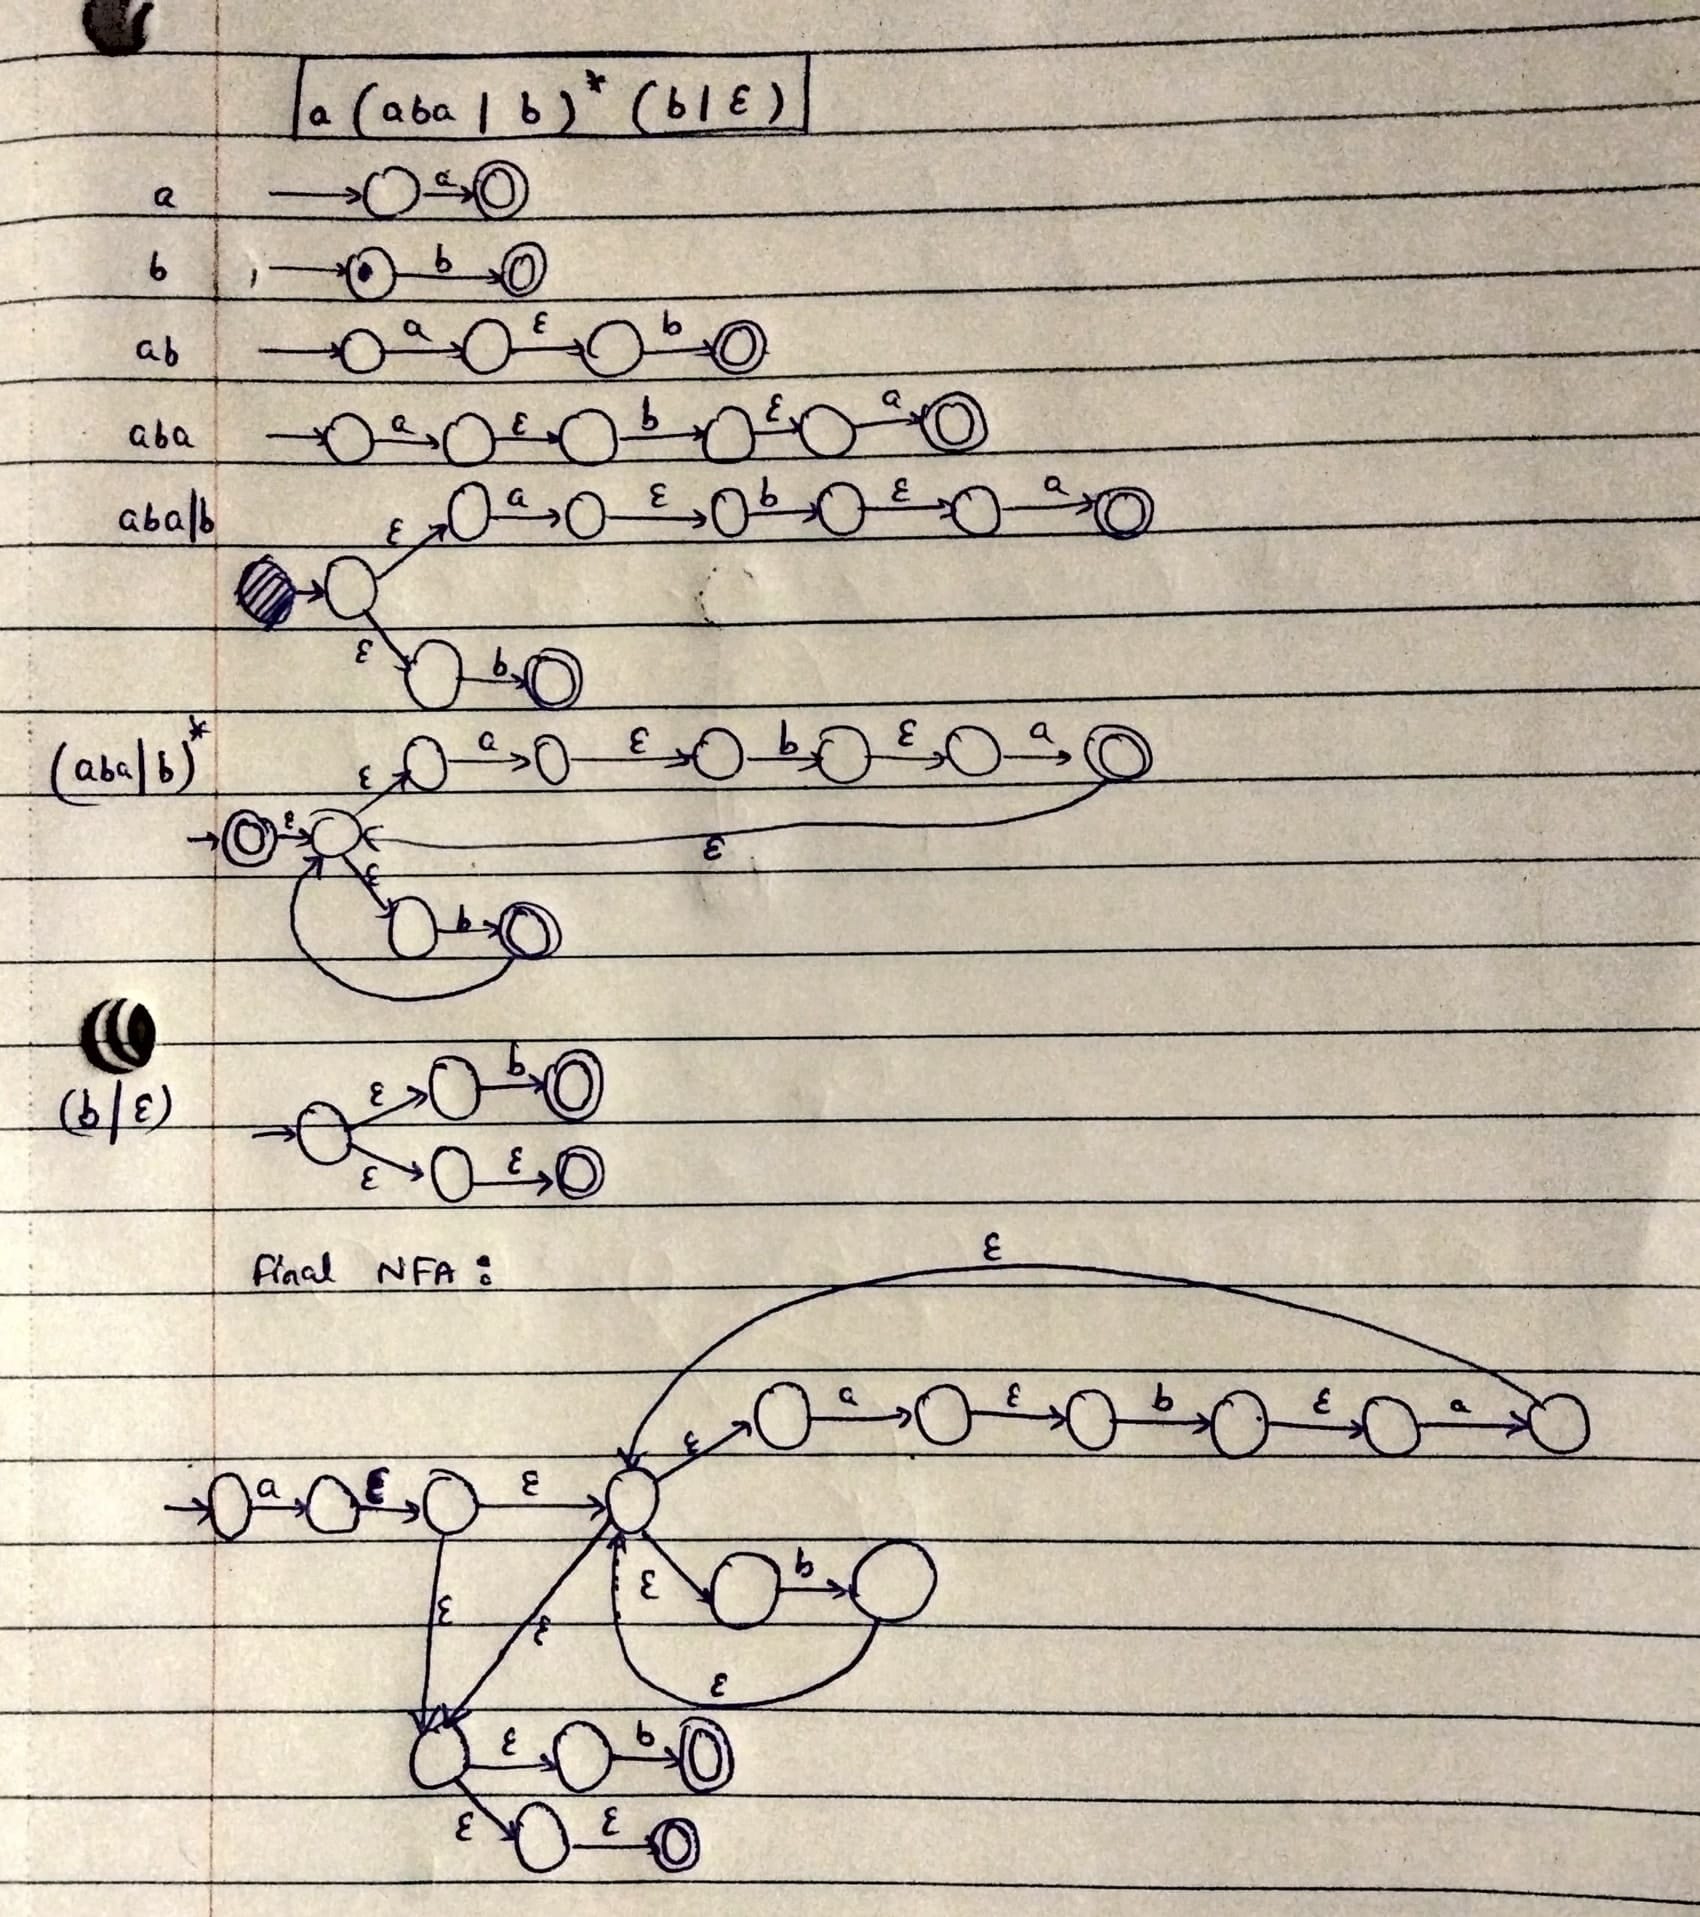 a (aba | b)* (b | ε)
a a
b b
ab a ε b
aba a ε b ε a
aba|b ε a ε b ε a
ε b
(aba|b)* ε a ε b ε a
ε ε
ε b
(b/ε) ε b
ε ε
Final NFA :
ε
ε a ε b ε a
a ε ε
ε b
ε ε
ε
ε b
ε ε